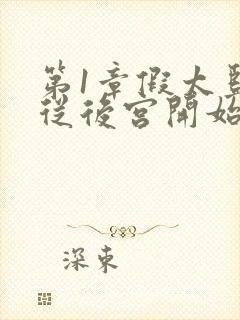 第1章假大
從後宮開始
深東